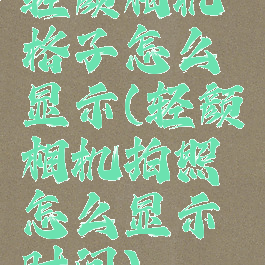 轻颜相机
格子怎么
显示(轻颜
相机拍照
怎么显示
时间)